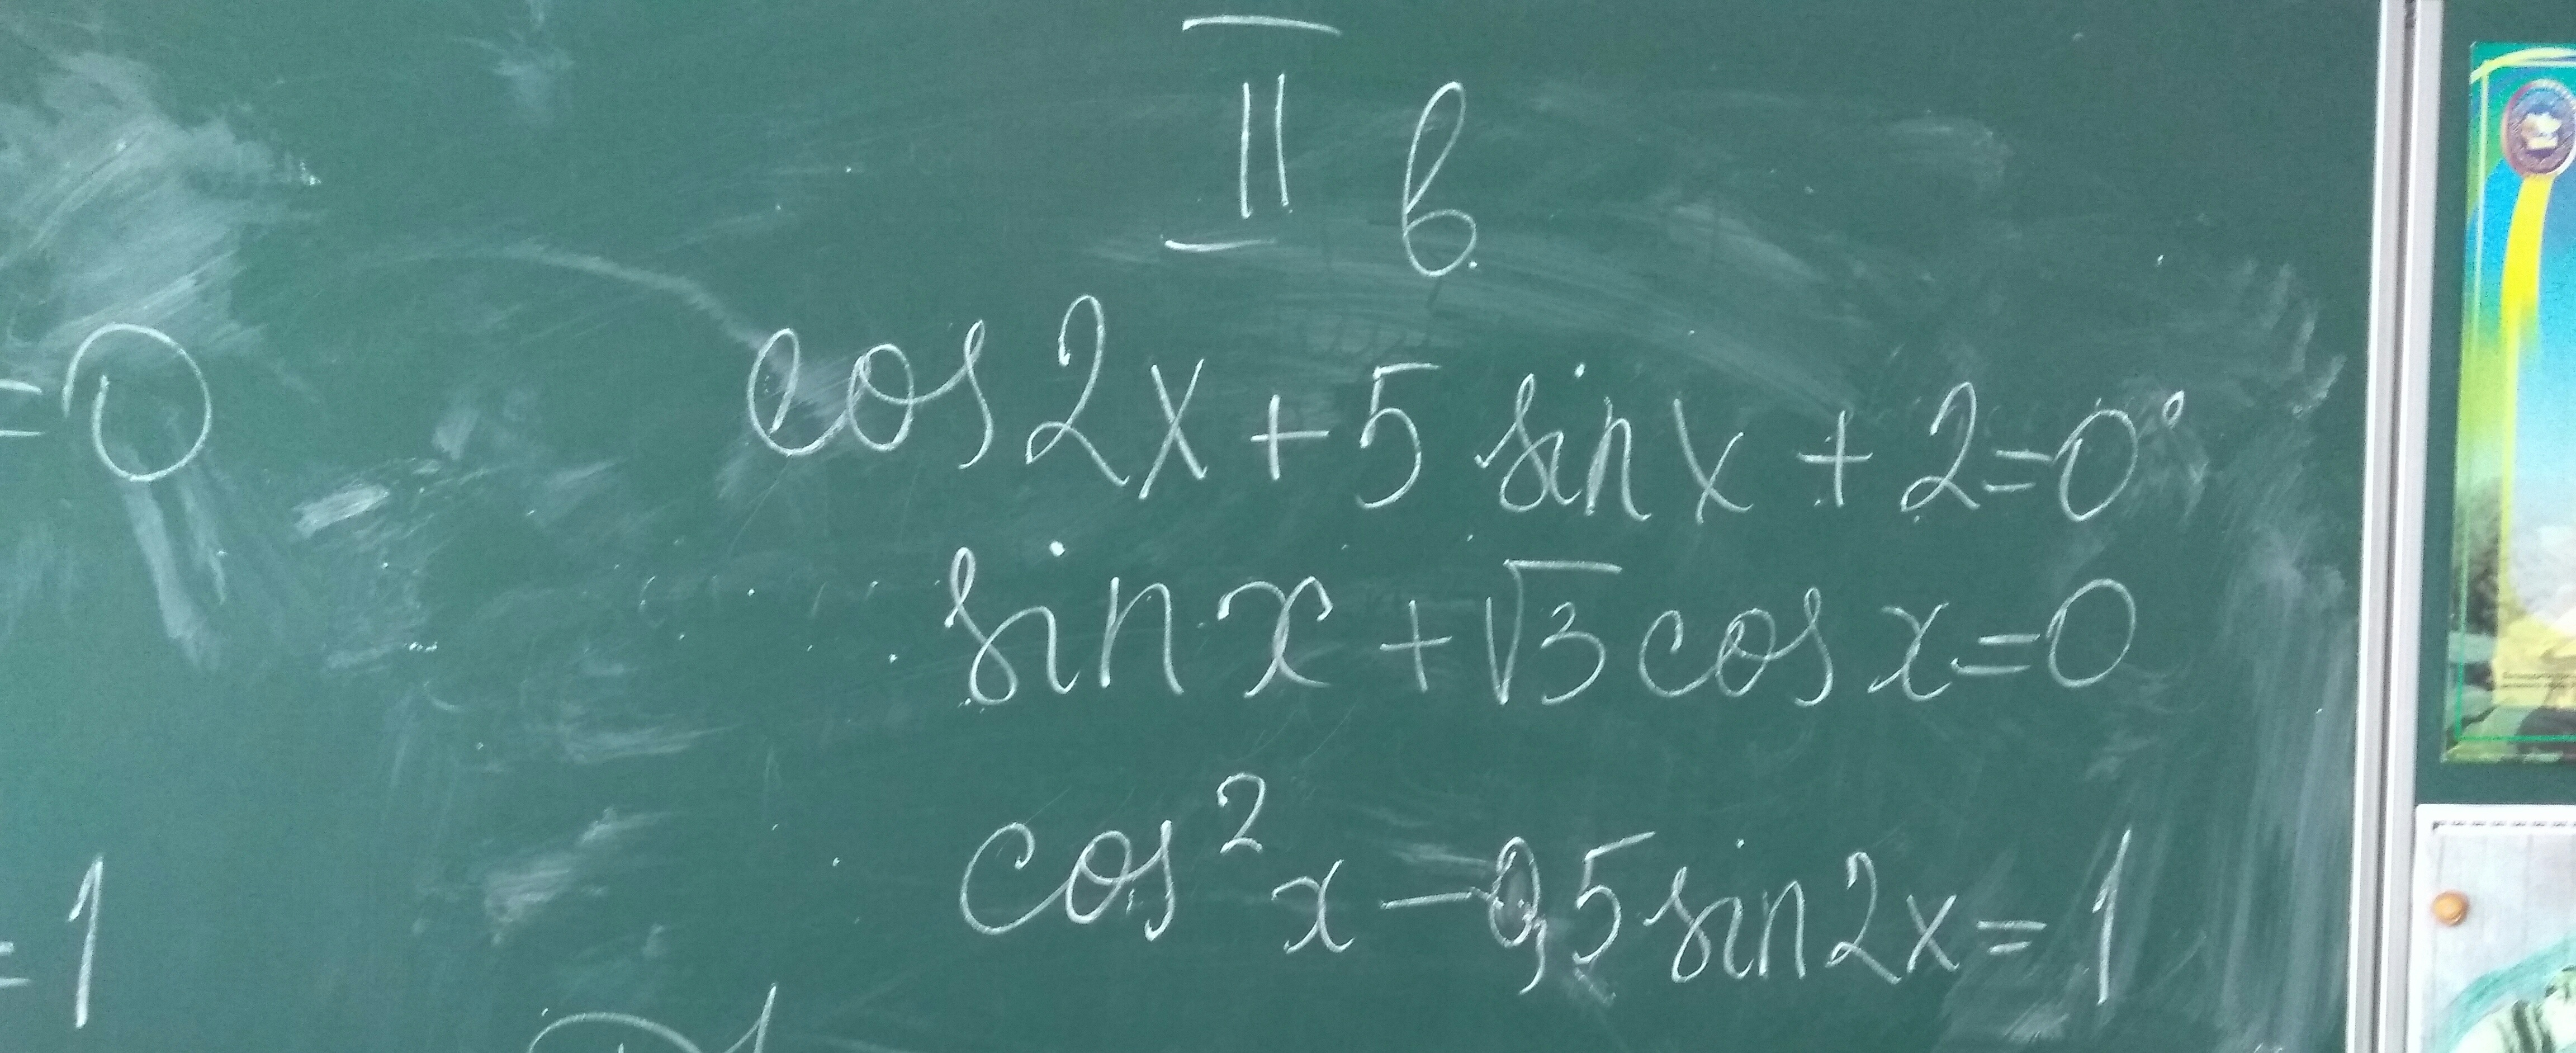 II в.
= 0
cos2x + 5 sinx + 2 = 0
sin x + √3 cos x = 0
cos²x − 0,5 sin2x = 1
= 1